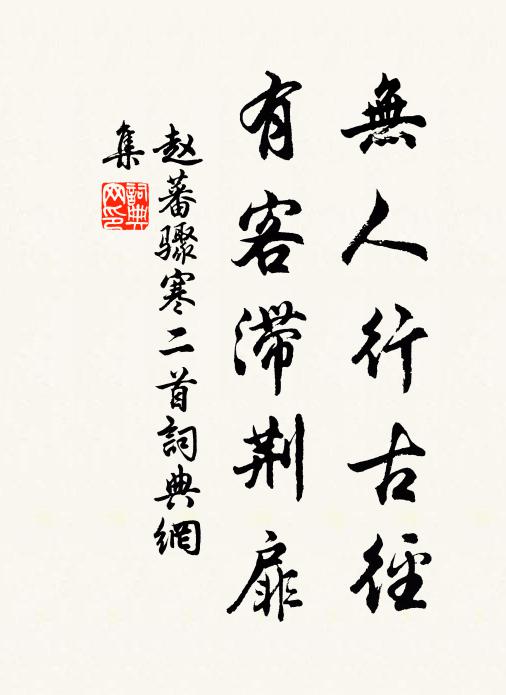 無人行古徑
有客滞荆扉
赵蕃骤寒二首詞典網
集
詞典网印